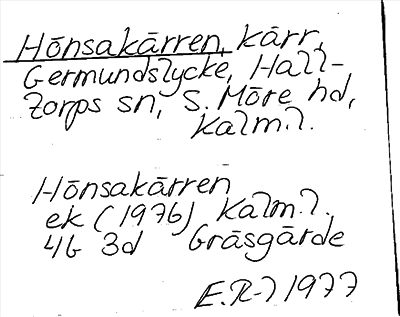 Hönsakärren, kärr,
Germundslycke, Hall-
torps sn, S. Möre hd,
Kalm. l.
Hönsakärren
ek (1976) Kalm. l.
4G 3d Gräsgärde
E.R-l 1977